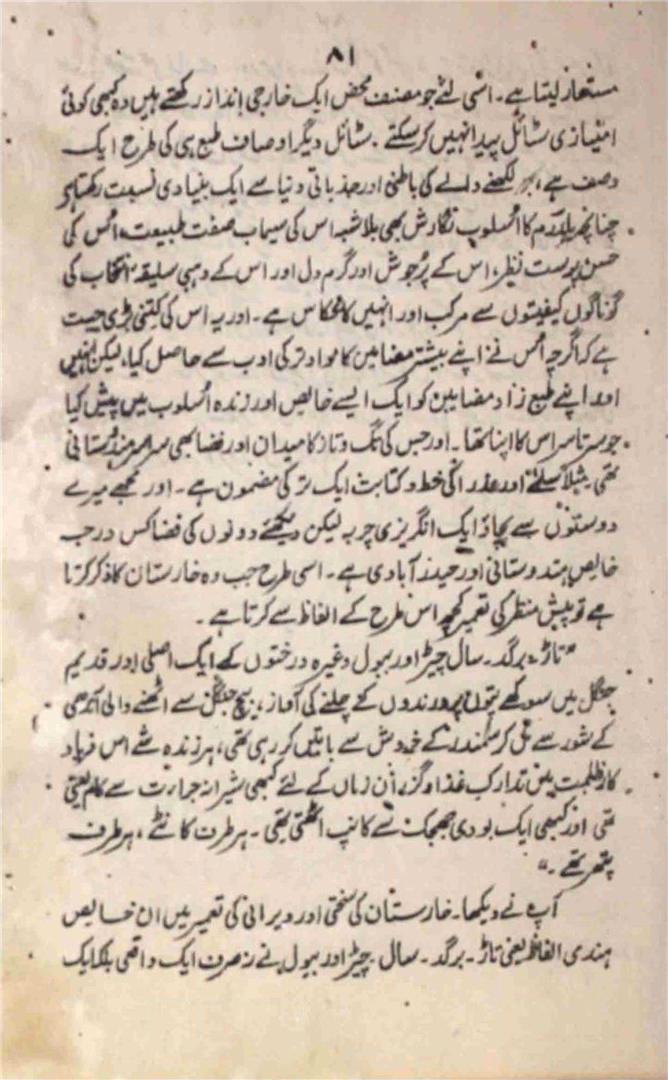 ۸۱
مستعار لیتا ہے۔ اسی لئے جو مصنف محض ایک خارجی انداز رکھتے ہیں وہ کبھی کوئی
امتیازی سٹائل پیدا نہیں کر سکتے۔ سٹائل دیگر اوصاف طبع ہی کی طرح ایک
وصف ہے، جو لکھنے والے کی باطنی اور جذباتی دنیا سے ایک بنیادی نسبت رکھتا ہے
چنانچہ یلدرم کا اسلوب نگارش بھی بلاشبہ اس کی سیماب صفت طبیعت، اس کی
حسن پرست نظر، اس کے پرجوش اور گرم دل اور اس کے وہبی سلیقہ انتخاب کی
گوناگوں کیفیتوں سے مرکب اور انہیں کا عکاس ہے۔ اور یہ اس کی کتنی بڑی جیت
ہے کہ اگرچہ اس نے اپنے بیشتر مضامین کا مواد ترکی ادب سے حاصل کیا، لیکن انہیں
اور اپنے طبع زاد مضامین کو ایک ایسے خالص اور زندہ اسلوب میں پیش کیا
جو سرتاسر اس کا اپنا تھا۔ اور جس کی تگ و تاز کا میدان اور فضا بھی سراسر ہندوستانی
تھی۔ مثلاً سلمٰے اور عذرا کی خط و کتابت ایک ترکی مضمون ہے۔ اور مجھے میرے
دوستوں سے بچاؤ ایک انگریزی چربہ لیکن دیکھئے دونوں کی فضا کس درجہ
خالص ہندوستانی اور حیدرآبادی ہے۔ اسی طرح جب وہ خارستان کا ذکر کرتا
ہے تو پیش منظر کی تعمیر کچھ اس طرح کے الفاظ سے کرتا ہے۔
"تاڑ۔ برگد۔ سال چیڑ اور ببول وغیرہ درختوں کے ایک اصلی اور قدیم
جنگل میں سوکھے پتوں پر درندوں کے چلنے کی آواز، بیچ جنگل سے اٹھنے والی آندھی
کے شور سے مل کر سمندر کے خروش سے باتیں کر رہی تھی، ہر زندہ شے اس فریاد
کار ظلمت میں تدارک غذا و گزران زماں کے لئے کبھی شیرانہ جرات سے کام لیتی
تھی اور کبھی ایک بودی جھجک سے کانپ اٹھتی تھی۔ ہر طرف کانٹے، ہر طرف
پتھر تھے۔"
آپ نے دیکھا۔ خارستان کی سختی اور ویرانی کی تعمیر میں ان خالص
ہندی الفاظ یعنی تاڑ۔ برگد۔ سال۔ چیڑ اور ببول نے نہ صرف ایک واقعی بلکہ ایک